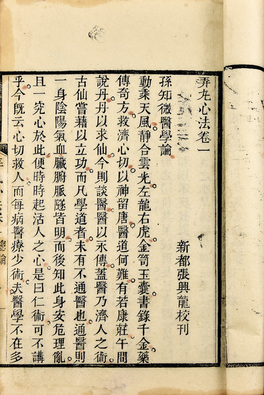 弄丸心法卷一
新都張興龍校刊
孫知微醫學論
動乘天風靜合雲光左龍右虎金笥玉囊書錄千金藥
傳奇方救濟心切以神留唐醫道何難有若康莊午間
說丹丹以求仙今則談醫醫以永傳蓋醫乃濟人之術
古仙嘗藉以立功而凡學道者未有不通也通醫則
一身陰陽氣血臟腑脈隧皆明而後知此身安危理亂
且一究心於此便時時起活人之心是曰仁術可不講
乎今既云心切救人而每病醫療少術夫醫學不在多